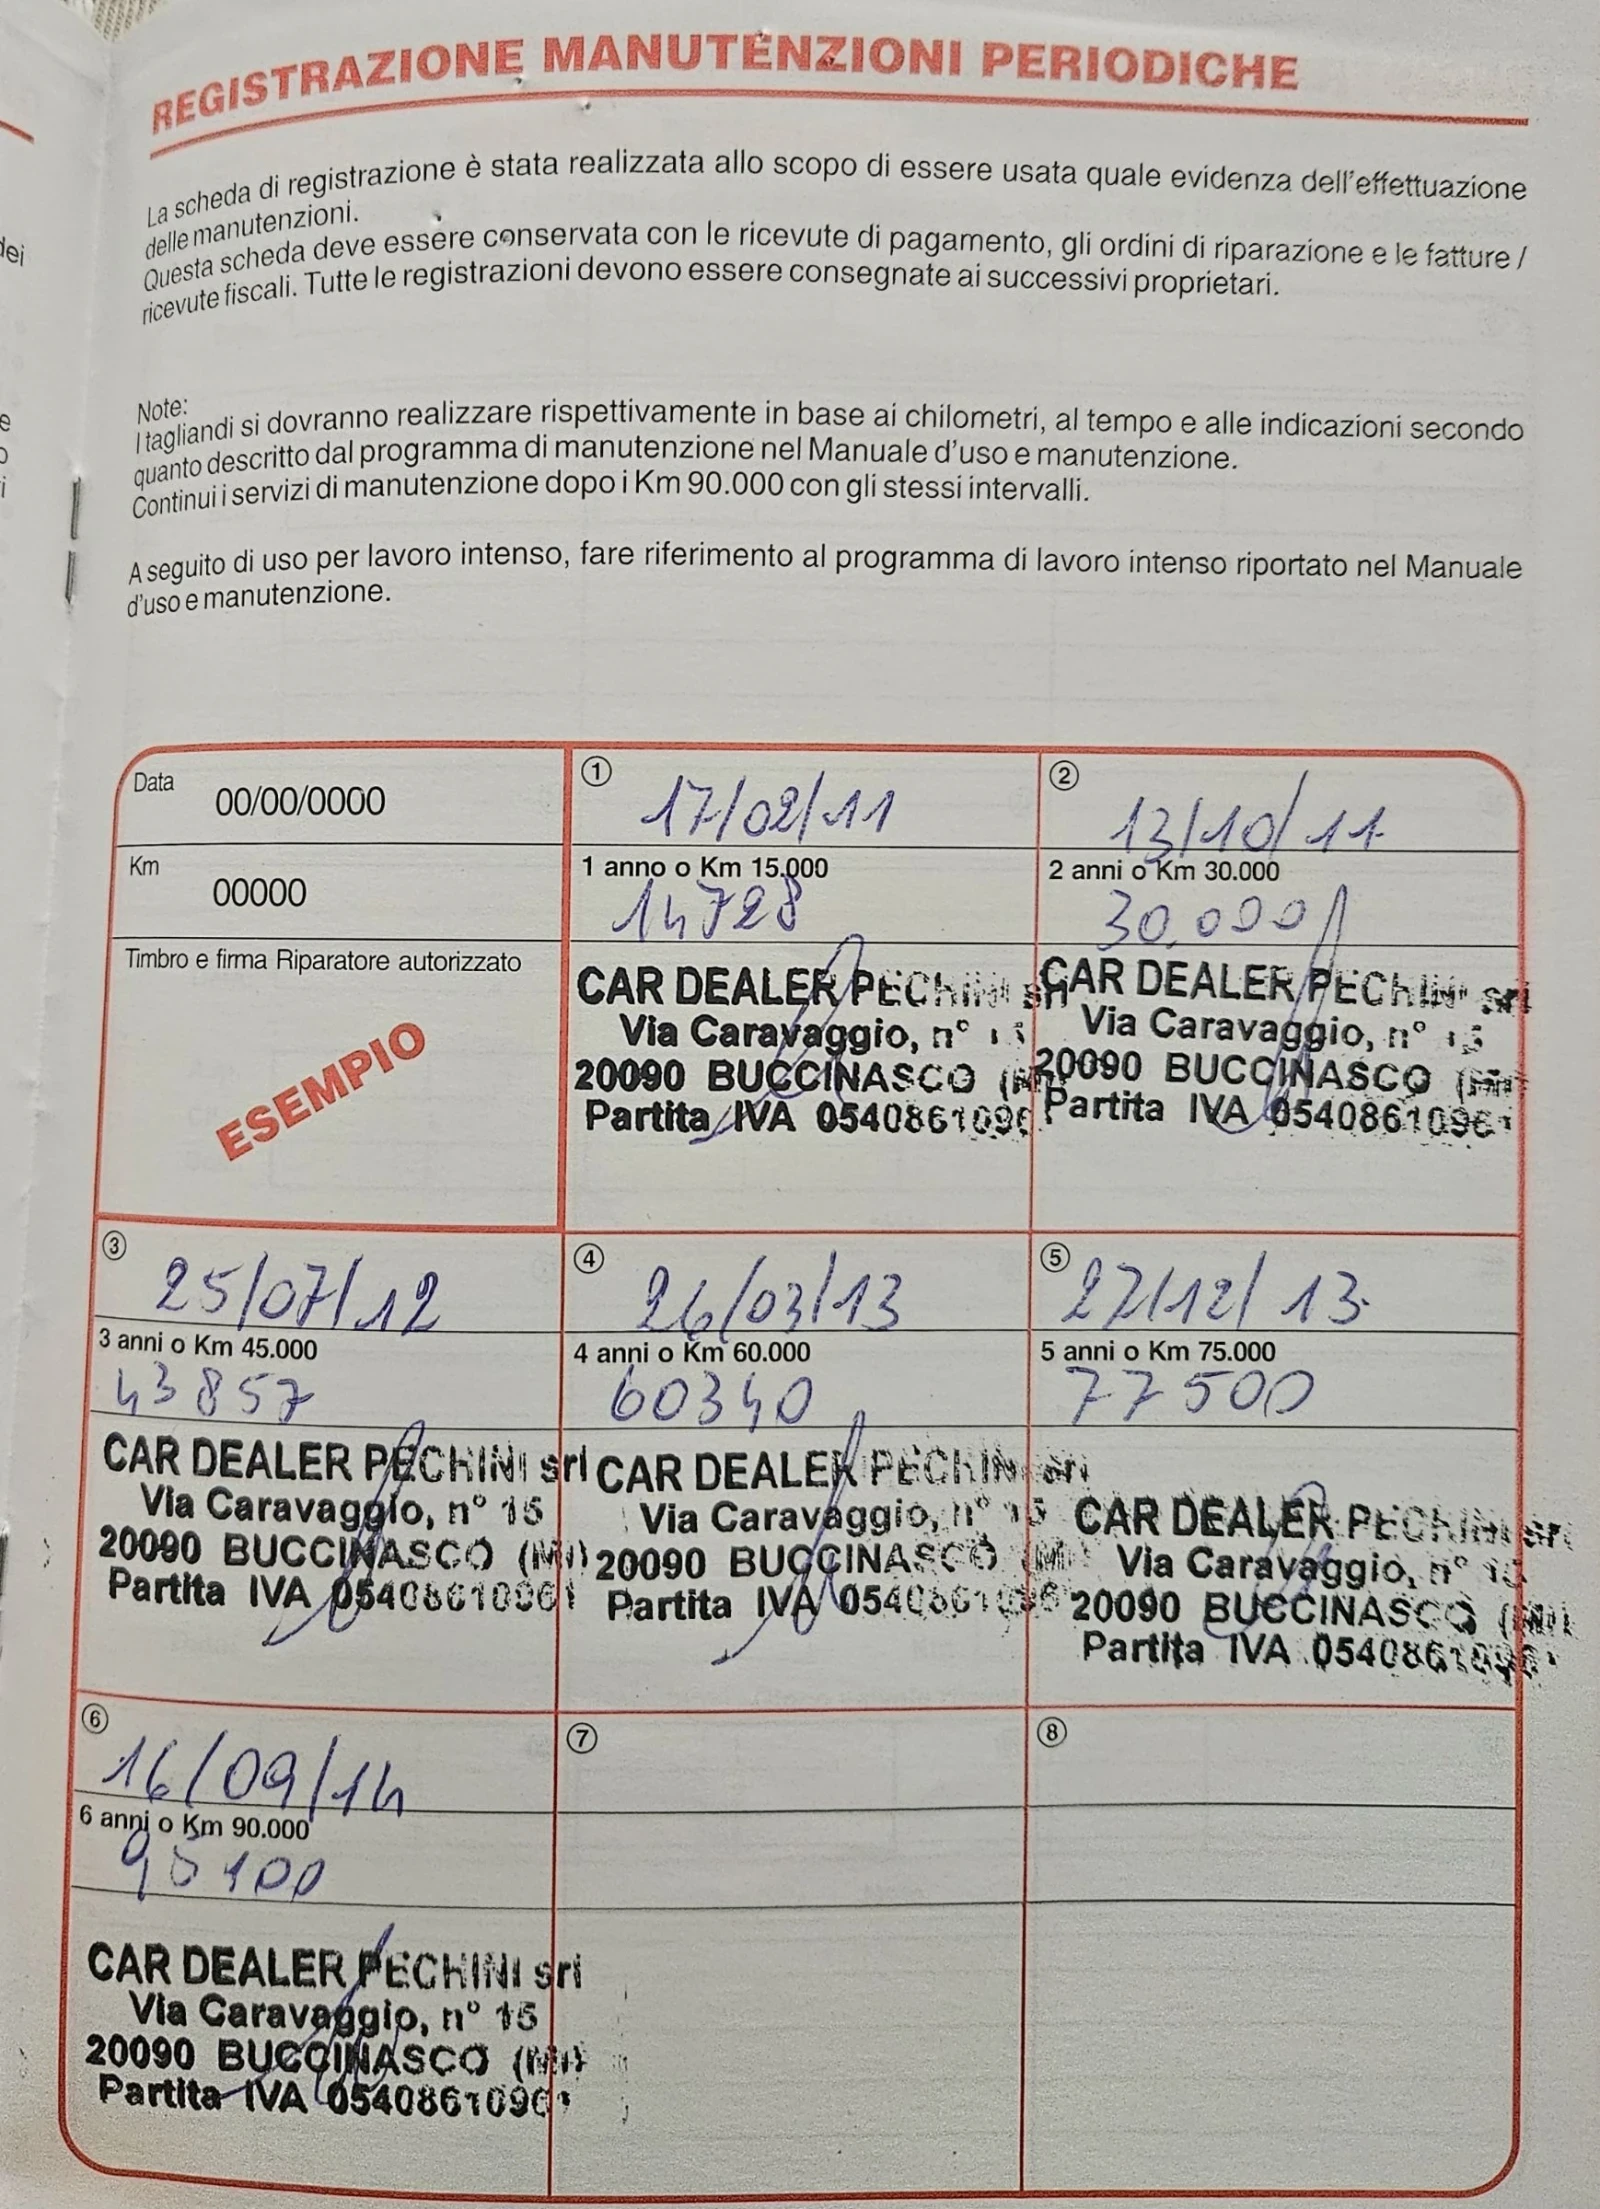 REGISTRAZIONE MANUTENZIONI PERIODICHE
La scheda di registrazione è stata realizzata allo scopo di essere usata quale evidenza dell'effettuazione
delle manutenzioni.
Questa scheda deve essere conservata con le ricevute di pagamento, gli ordini di riparazione e le fatture /
ricevute fiscali. Tutte le registrazioni devono essere consegnate ai successivi proprietari.
Note:
I tagliandi si dovranno realizzare rispettivamente in base ai chilometri, al tempo e alle indicazioni secondo
quanto descritto dal programma di manutenzione nel Manuale d'uso e manutenzione.
Continui i servizi di manutenzione dopo i Km 90.000 con gli stessi intervalli.
A seguito di uso per lavoro intenso, fare riferimento al programma di lavoro intenso riportato nel Manuale
d'uso e manutenzione.
Data
00/00/0000
Km
00000
Timbro e firma Riparatore autorizzato
ESEMPIO
1
17/02/11
1 anno o Km 15.000
14728
CAR DEALER PECHINI srl
Via Caravaggio, n° 15
20090 BUCCINASCO
Partita IVA 0540861096
2
13/10/11
2 anni o Km 30.000
30.000
CAR DEALER PECHINI srl
Via Caravaggio, n° 15
20090 BUCCINASCO (MI)
Partita IVA 05408610961
3
25/07/12
3 anni o Km 45.000
43857
CAR DEALER PECHINI srl
Via Caravaggio, n° 15
20090 BUCCINASCO (MI)
Partita IVA 05408610961
4
26/03/13
4 anni o Km 60.000
60340
CAR DEALER PECHINI srl
Via Caravaggio, n° 15
20090 BUCCINASCO (MI)
Partita IVA 05408610961
5
27/12/13
5 anni o Km 75.000
77500
CAR DEALER PECHINI srl
Via Caravaggio, n° 15
20090 BUCCINASCO (MI)
Partita IVA 05408610961
6
16/09/14
6 anni o Km 90.000
CAR DEALER PECHINI srl
Via Caravaggio, n° 15
20090 BUCCINASCO (MI)
Partita IVA 05408610961
7
8